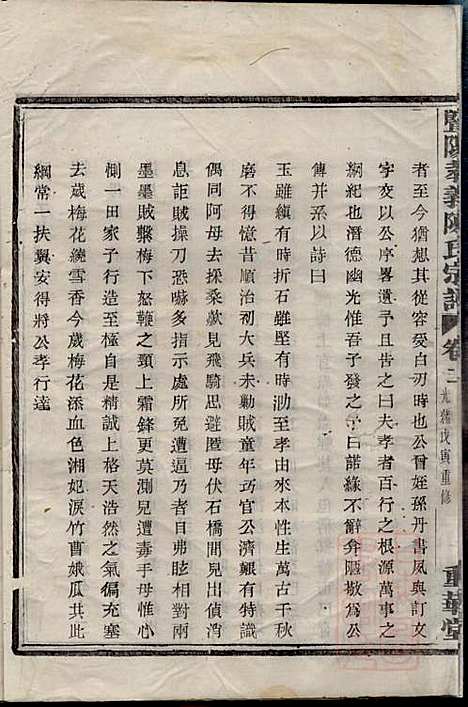 暨陽孝義陳氏宗譜 卷二 光緒戊寅重修 重華堂
者至今猶想其從容受白刃時也公曾姪孫丹書夙與訂文
字交以公序畧遺予且告之曰夫孝者百行之根源萬事之
綱紀也潛德幽光惟吾子發之予曰諾緣不辭弇陋敬為公
傳并系以詩曰
玉雖縝有時玷石雖堅有時泐至孝由來本性生萬古千秋
磨不得憶昔順治初大兵未勦賊童年巧官公濟艱有特識
偶同阿母去採桑歘見飛騎思避匿母伏石橋間兒出偵消
息詎賊操刀恐嚇多指示處所竟遭逼乃目弗眩相對兩
墨墨賊繫梅下怒鞭之頸上霜鋒更莫測兒遭毒手母惟心
惻一田家子行造至極自是精誠上格天浩然之氣偏充塞
去歲梅花繞雪香今歲梅花添血色湘妃淚竹曹娥瓜共此
綱常一扶翼安得將公孝行達